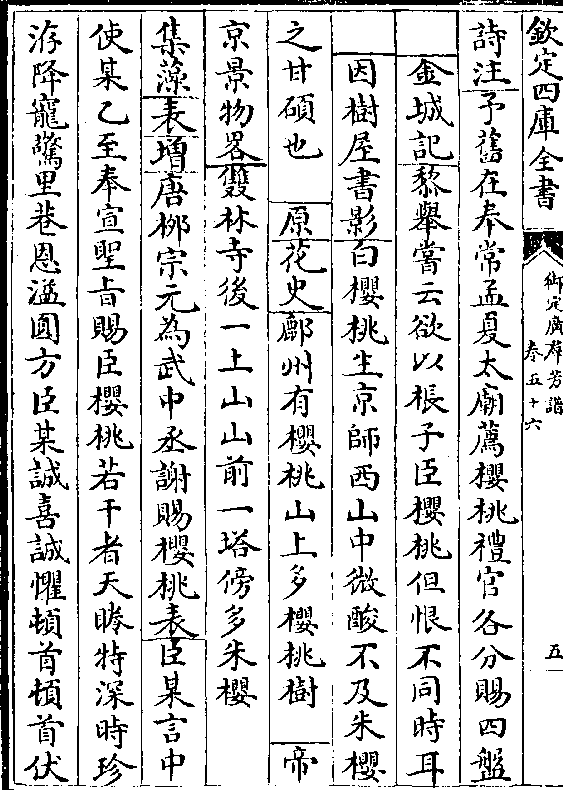 欽定四庫全書
御定廣羣芳譜
卷五十六
五
詩注予舊在奉常孟夏太廟薦櫻桃禮官各分賜四盤
金城記黎舉嘗云欲以棖子臣櫻桃但恨不同時耳
因樹屋書影白櫻桃生京師西山中微酸不及朱櫻
之甘碩也 原花史鄜州有櫻桃山上多櫻桃樹 帝
京景物畧雙林寺後一上山山前一塔傍多朱櫻
集藻表增唐栁宗元為武中丞謝賜櫻桃表臣某言中
使某乙至奉宣聖旨賜臣櫻桃若干者天睠特深時珍
洊降寵驚里巷恩溢圓方臣某誠喜誠懼頓首頓首伏